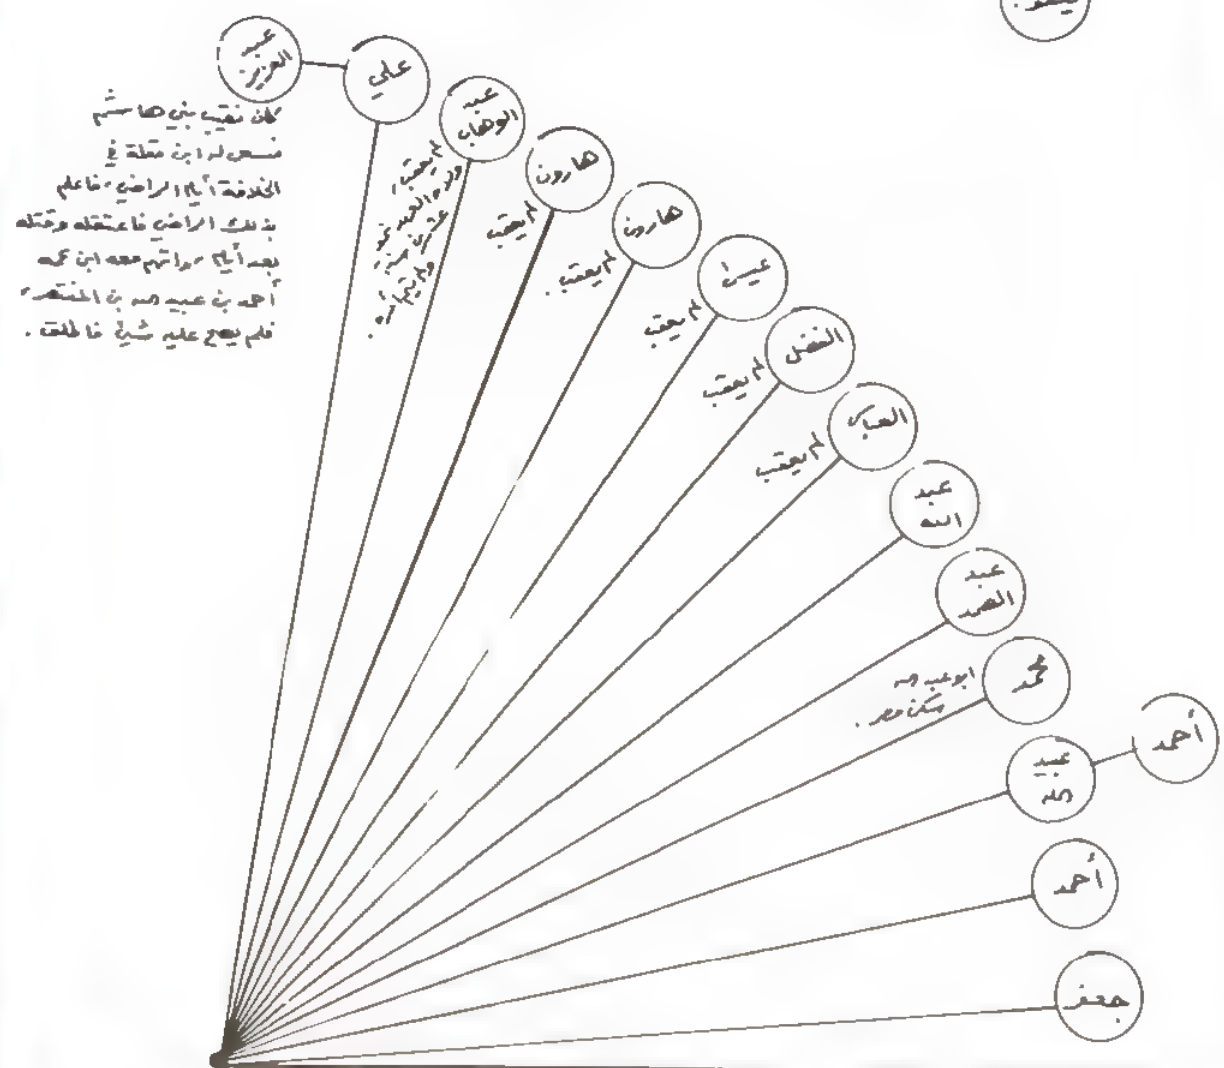 عبد
العزيز
علي
كان نقيب بني هاشم
فسعى له ابن مقلة في
الخلافة أيام الراضي، فاعلم
بذلك الراضي فاعتقله وقتله
بعد أيام، واتهم معه ابن عمه
أحمد بن عبيد الله بن المنتصر،
فلم يصح عليه شيئ فاطلق.
عبد
الوهاب
لم يعقب،
ولاه
ولم يتم أمره.
هارون
لم يعقب
هارون
لم يعقب.
عيسى
لم يعقب
الفضل
لم يعقب
العباس
لم يعقب
عبد
الله
عبد
الصمد
محمد
ابو عبد الله
سكن مصر.
عبيد
الله
أحمد
أحمد
جعفر